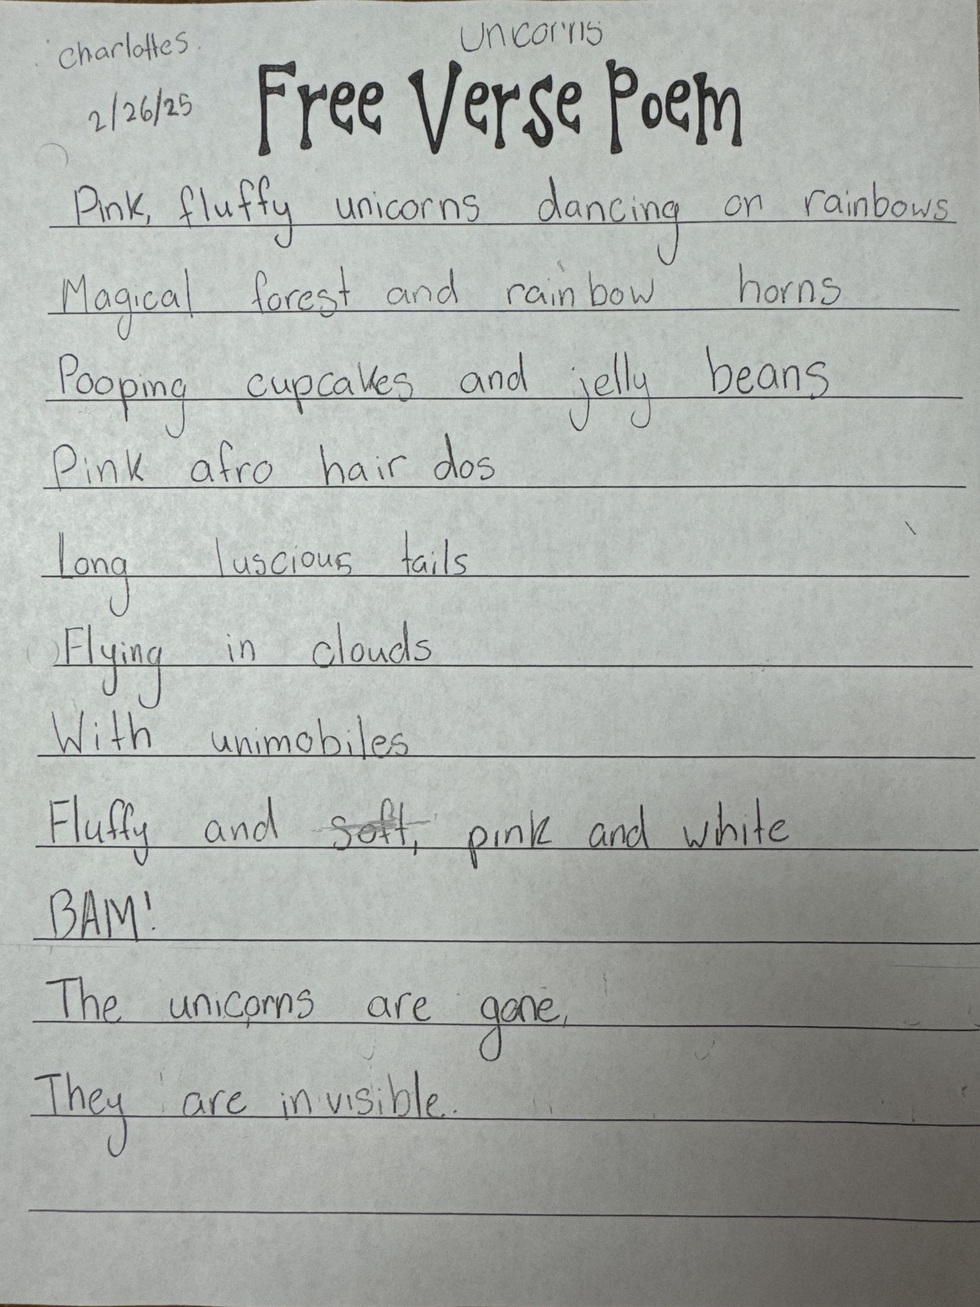 Charlottes.
Unicorns
2/26/25
Free Verse Poem
Pink, fluffy unicorns dancing on rainbows
Magical forest and rainbow horns
Pooping cupcakes and jelly beans
Pink afro hair dos
Long luscious tails
Flying in clouds
With unimobiles
Fluffy and soft, pink and white
BAM!
The unicorns are gone,
They are invisible.